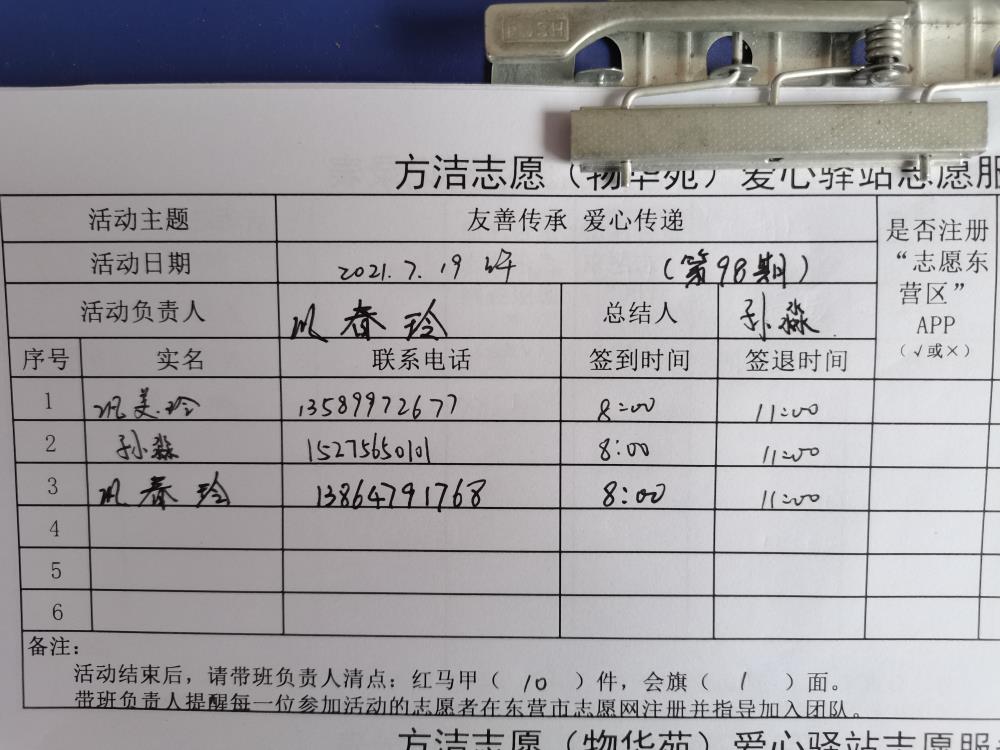 PUSH
方洁志愿（物华苑）爱心驿站志愿服
活动主题 友善传承 爱心传递 是否注册“志愿东营区”APP（√或×）
活动日期 2021.7.19 （第98期）
活动负责人 春玲 总结人 孙淼
序号 实名 联系电话 签到时间 签退时间
1 美玲 13589972677 8:00 11:00
2 孙淼 15275650101 8:00 11:00
3 春玲 13864791768 8:00 11:00
4
5
6
备注：
活动结束后，请带班负责人清点：红马甲（ 10 ）件，会旗（ 1 ）面。
带班负责人提醒每一位参加活动的志愿者在东营市志愿网注册并指导加入团队。
方洁志愿（物华苑）爱心驿站志愿服